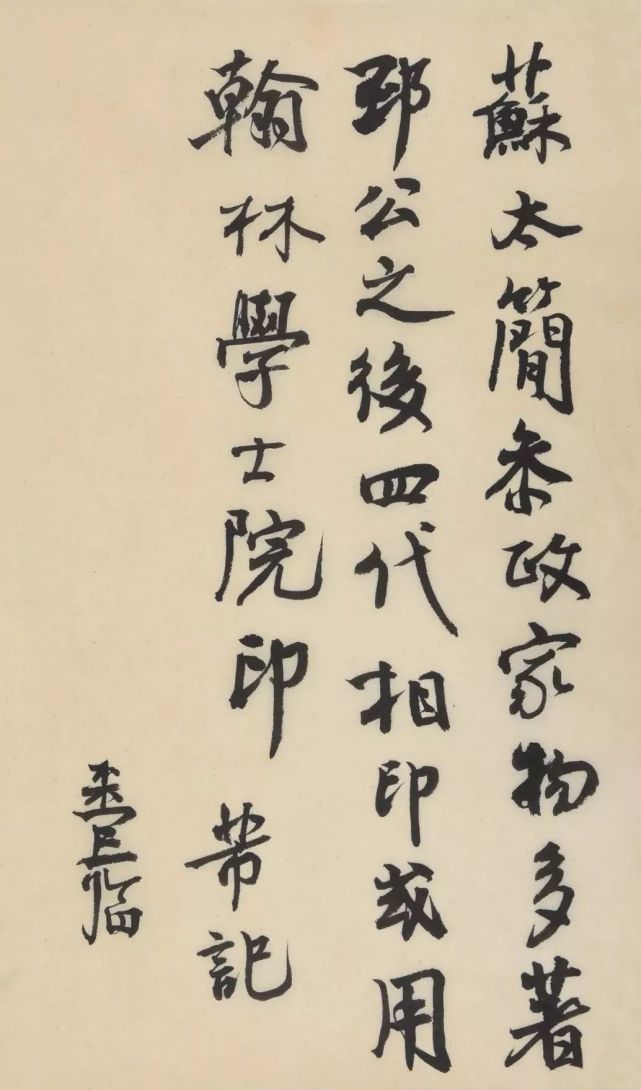 蘇太簡參政家物多著
邳公之後四代相印或用
翰林學士院印 芾記
臨